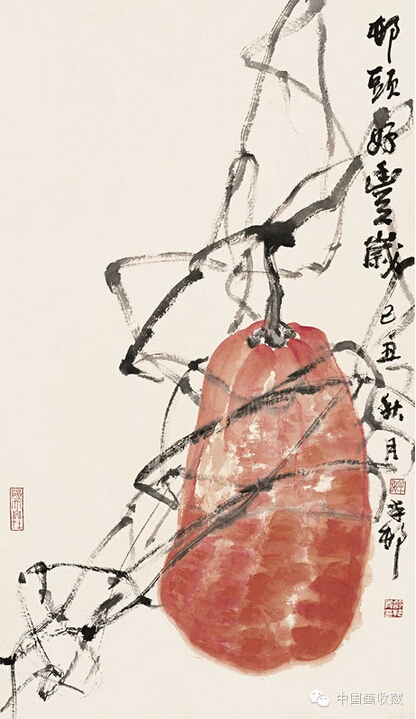 邨頭好豐歲 己丑 秋月 邨
中国画收藏